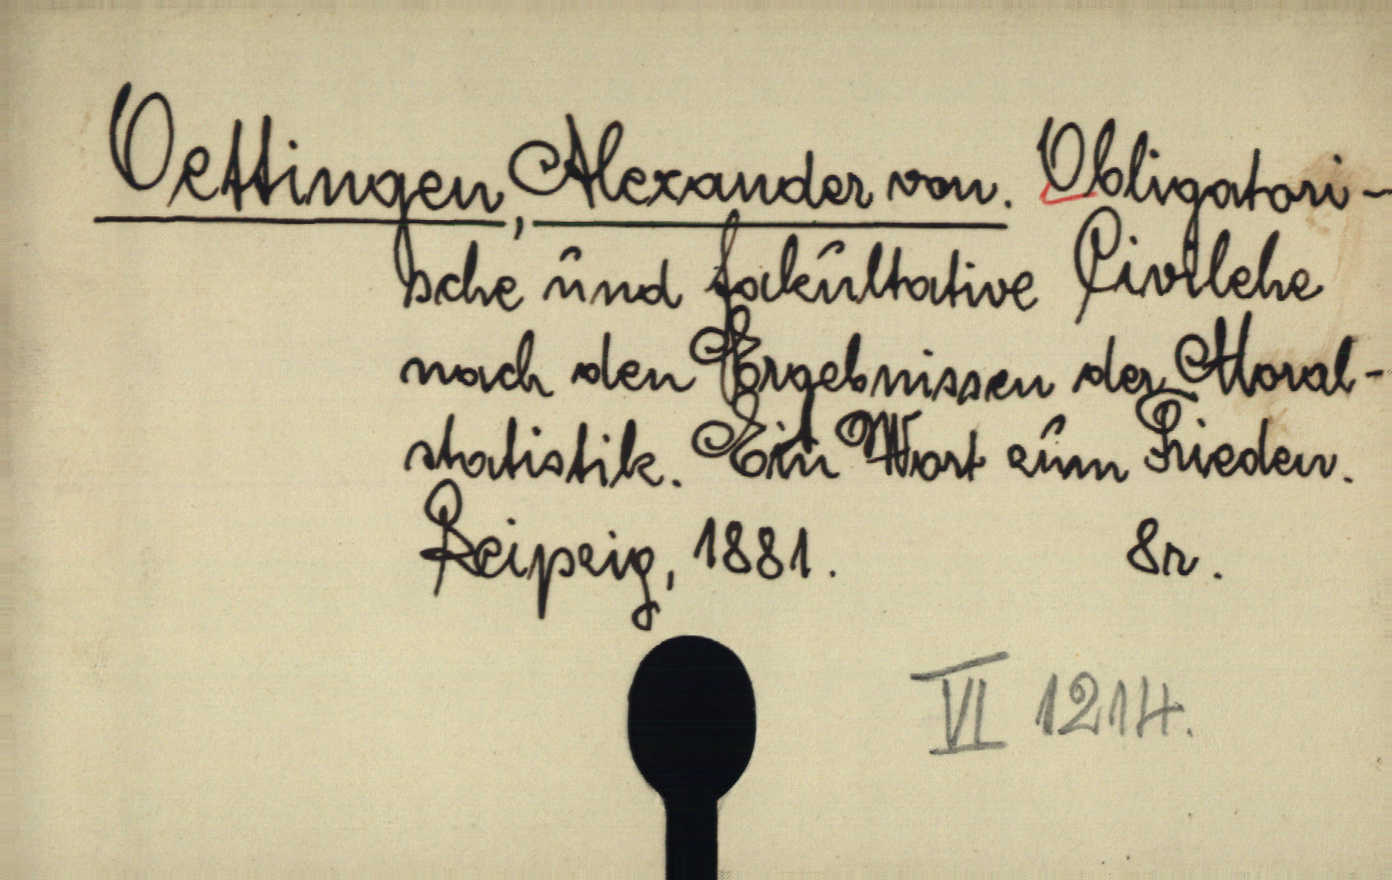 Oettingen, Alexander von. Obligatori-
sche und fakultative Civilehe
nach den Ergebnissen der Moral-
statistik. Ein Wort zum Frieden.
Leipzig, 1881. 8r.
VI 1214.